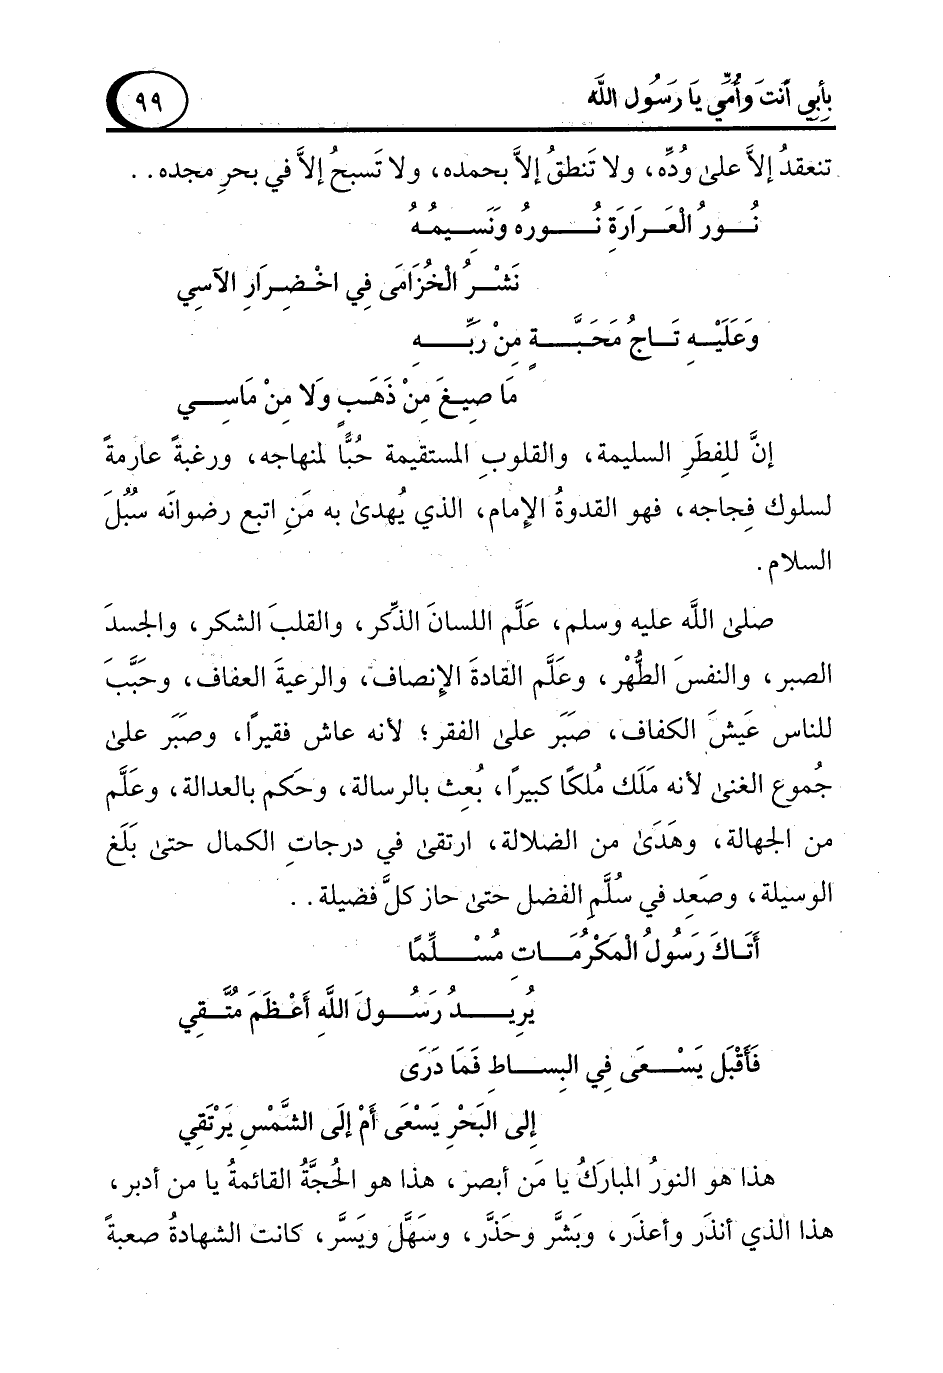 بأبي أنتَ وأُمِّي يَا رَسُول اللَّه
٩٩
تنعقدُ إلاَّ علىٰ وُدِّه، ولا تَنطقُ إلاَّ بحمده، ولا تَسبحُ إلاَّ في بحرِ مجده..
نُـــورُ الْعَـرَارَةِ نُـــــورهُ وَنَسِـيمُـهُ
نَشْـرُ الْخُزَامَى فِي اخْضِـرَارِ الآسِي
وَعَلَيْـهِ تَـاجُ مَحَبَّـــةٍ مِنْ رَبِّــــهِ
مَا صِيغَ مِنْ ذَهَبٍ وَلَا مِنْ مَاسِـــي
إنَّ للفِطَرِ السليمة، والقلوبِ المستقيمة حُبًّا لمنهاجه، ورغبةً عارمةً
لسلوك فِجاجه، فهو القدوةُ الإمام، الذي يُهدىٰ به مَنِ اتبع رضوانَه سُبُلَ
السلام.
صلىٰ اللَّه عليه وسلم، عَلَّم اللسانَ الذِّكر، والقلبَ الشكر، والجسدَ
الصبر، والنفسَ الطُّهْر، وعَلَّم القادةَ الإنصاف، والرعيةَ العفاف، وحَبَّبَ
للناس عَيشَ الكفاف، صَبَر علىٰ الفقر؛ لأنه عاش فقيرًا، وصبَر علىٰ
جُموع الغنىٰ لأنه مَلَك مُلكًا كبيرًا، بُعث بالرسالة، وحَكم بالعدالة، وعلَّم
من الجهالة، وهَدَىٰ من الضلالة، ارتقىٰ في درجاتِ الكمال حتىٰ بَلَغ
الوسيلة، وصَعِد في سُلَّمِ الفضل حتىٰ حاز كلَّ فضيلة..
أَتَـاكَ رَسُـولُ الْمَكْرُمَـــات مُسْــــلِّمًا
يُرِيـــــدُ رَسُـــولَ اللَّهِ أَعْـظَمَ مُتَّـقِي
فَأَقْبَلَ يَسْــعَى فِي البِســـاطِ فَمَا دَرَى
إِلى البَحْرِ يَسْعَى أَمْ إِلَى الشَّمْسِ يَرْتَقِي
هذا هو النورُ المبارَكُ يا مَن أبصر، هذا هو الحجَّةُ القائمةُ يا من أدبر،
هذا الذي أنذَر وأعذَر، وبَشَّر وحَذَّر، وسَهَّل ويَسَّر، كانت الشهادةُ صعبةً